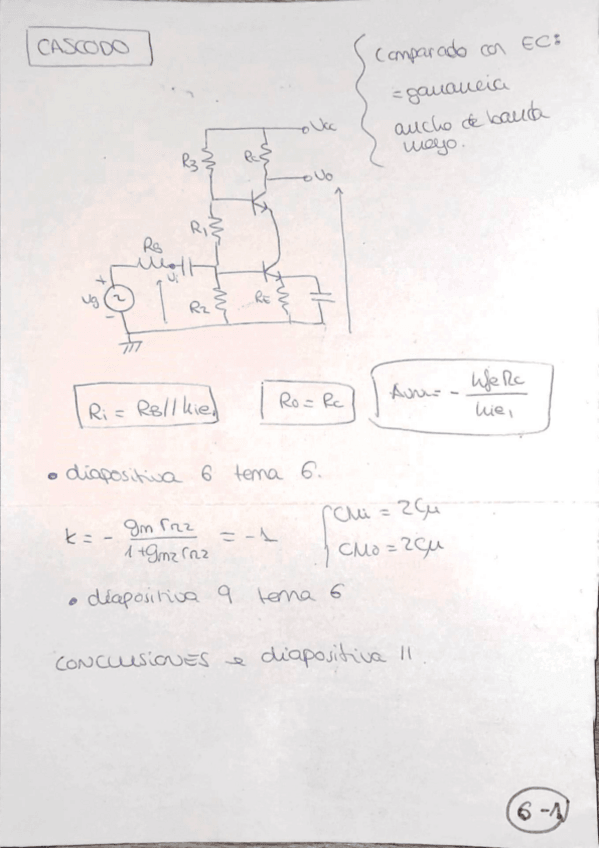 CASCODO
Comparado con EC:
= ganancia
ancho de banda
mayo.
Vcc
R3
Rc
Vo
R1
RB
Vi
+
Vg
-
R2
RE
Ri = RB // hie1
Ro = Rc
Avm = - hfe Rc / hie1
• diapositiva 6 tema 6.
k = - gm rπ2 / 1 + gm2 rπ2 = -1
CMi = 2Cμ
CMo = 2Cμ
• diapositiva 9 tema 6
CONCLUSIONES → diapositiva 11.
6-1